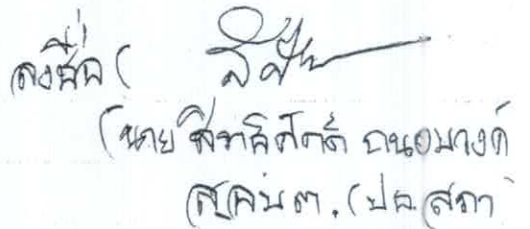 ลงชื่อ (
(นาย สิทธิศักดิ์ ถนอมวงค์
ส.อบต. (ปธ.สภา